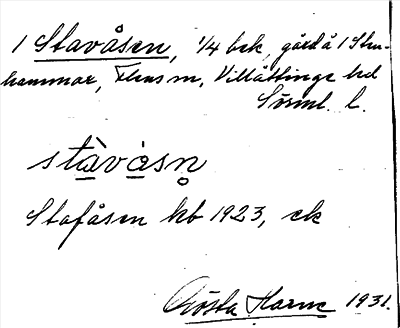 1 Stavåsen, 1/4 bsk, gård å 1 Sten-
hammar, Flens sn, Villåttinge hd
Sörml. l.
stàvåsn̥
Stafåsen kb 1923, ek
Gösta Harne 1931.